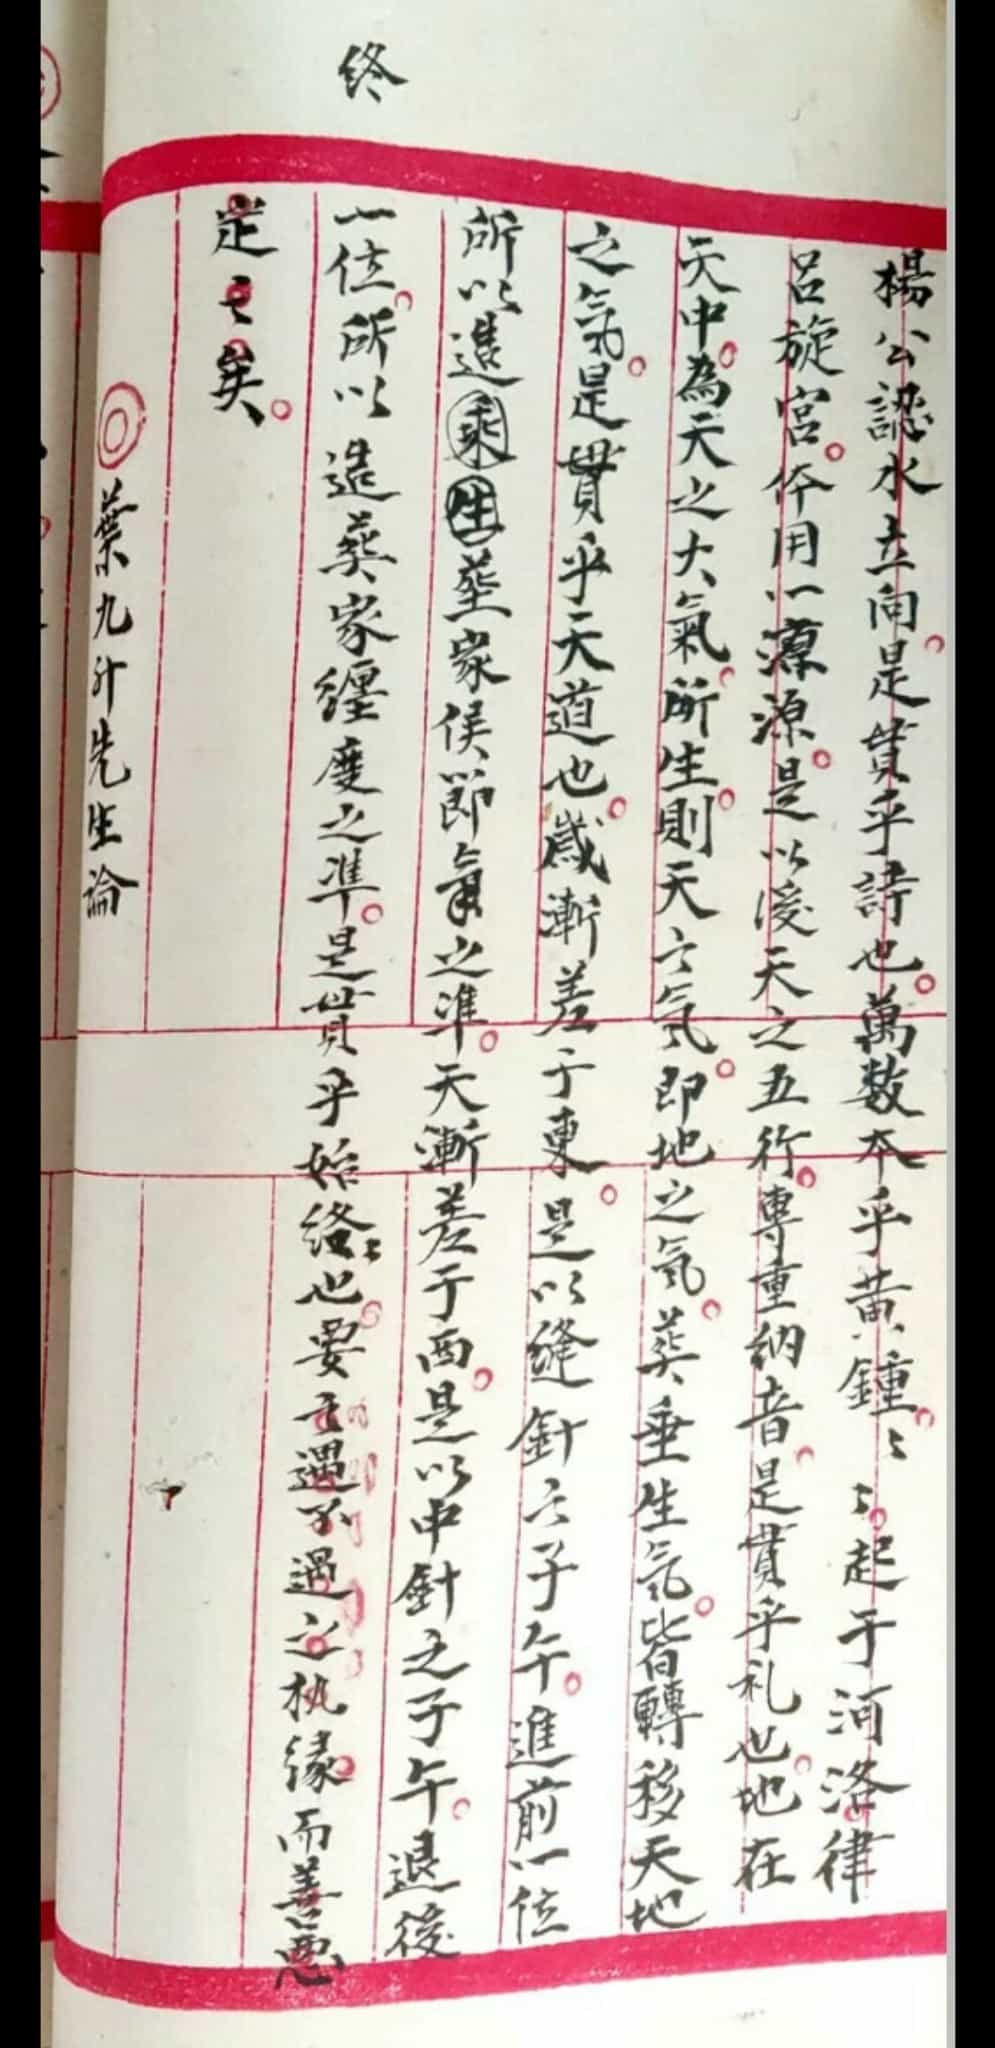 終
楊公認水立向是貫乎詩也萬数本乎黄鍾〻〻起于河洛律
呂旋宮体用一源源是以後天之五行專重納音是貫乎礼也地在
天中為天之大氣所生則天之气即地之气葬乗生气皆轉移天地
之気是貫乎天道也歳漸差于東是以縫針之子午進前一位
所以造乘生塟家侯節氣之準天漸差于西是以中針之子午退後
一位所以造葬家纒度之準是貫乎始終〻也要主遇不遇之机缘而善恶
定之矣
葉九升先生論